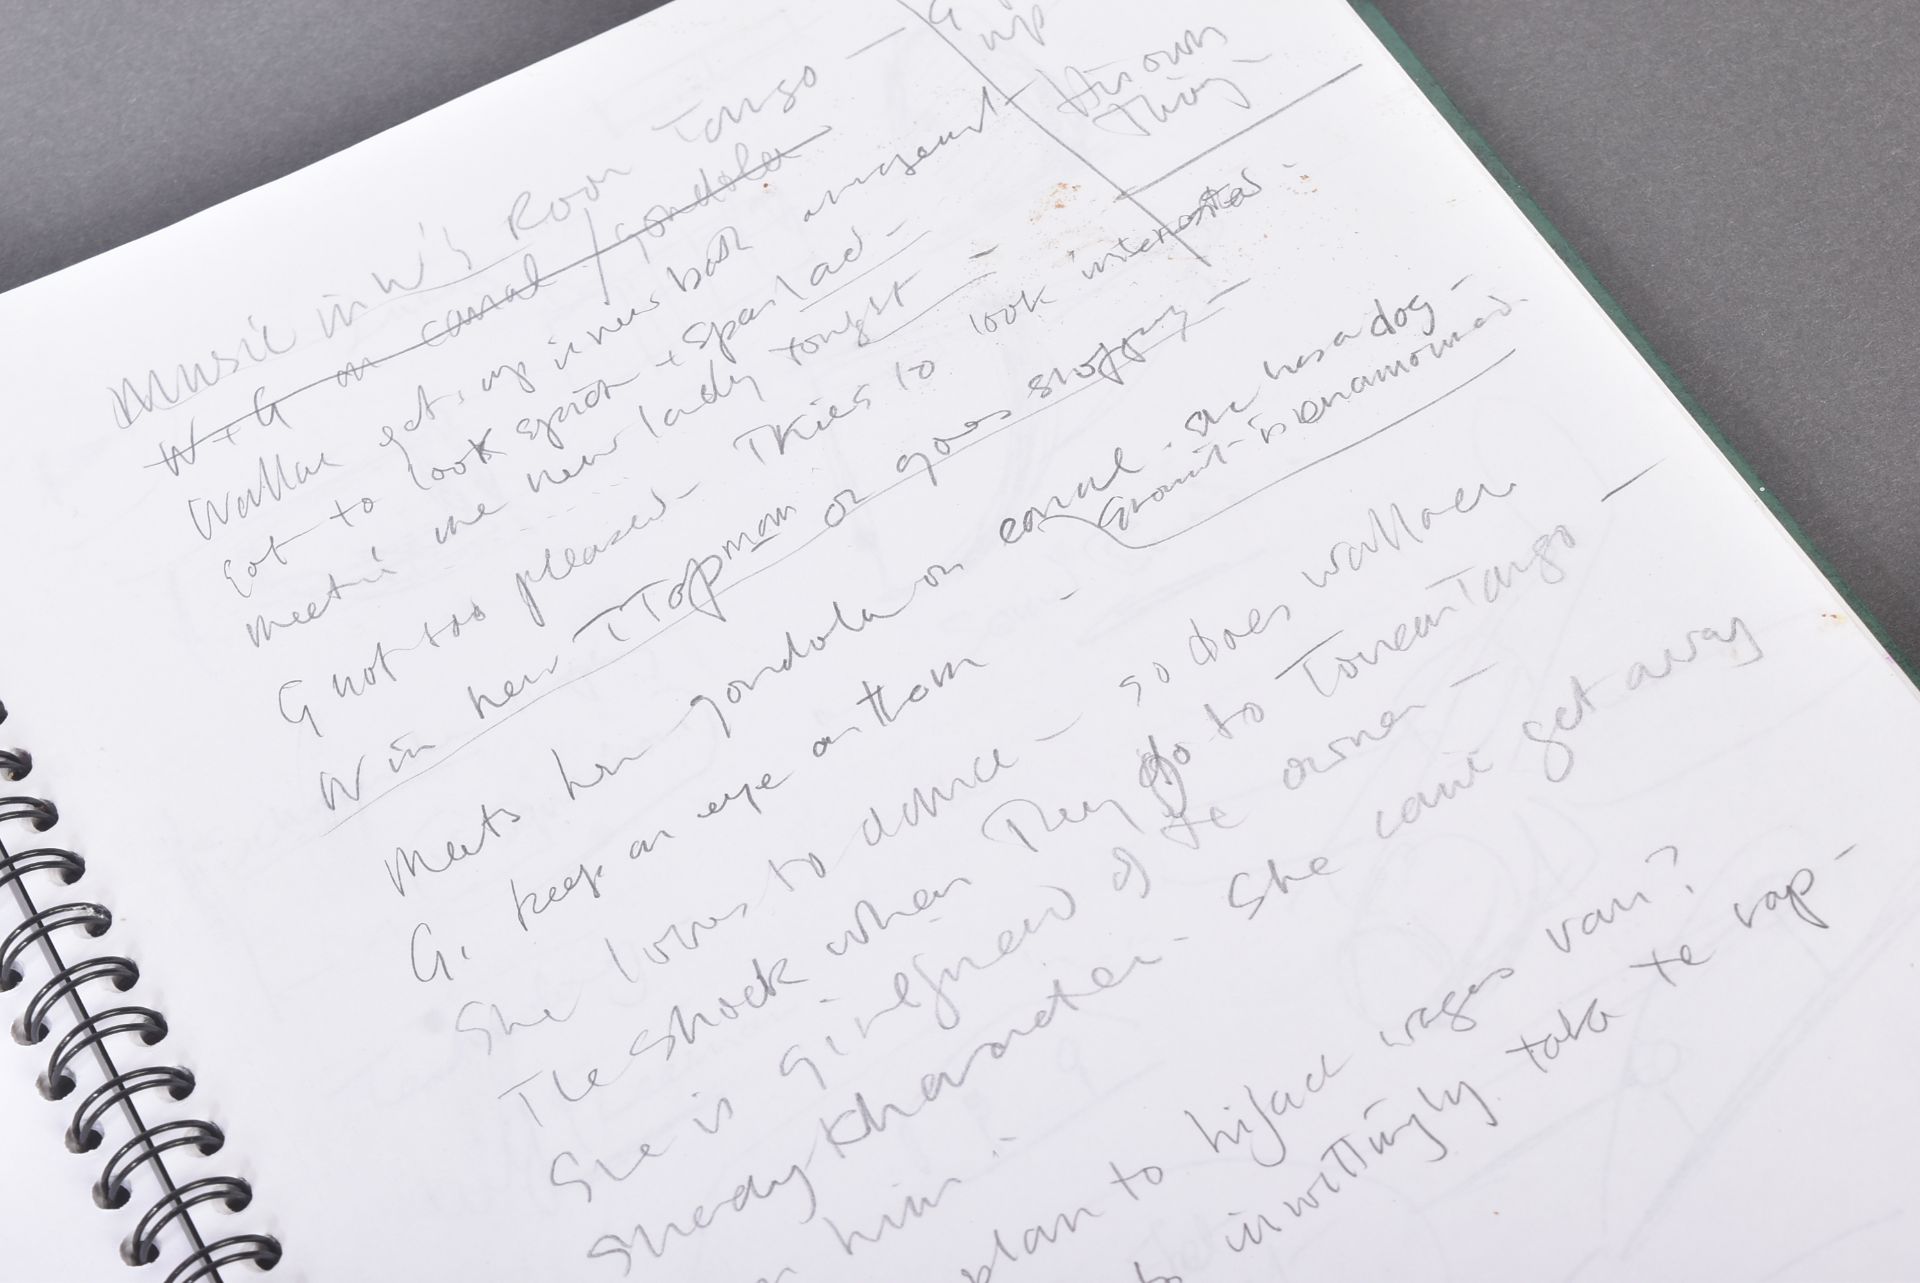 up
thrown
Music in W's Room Tango —
W + G on canal / gondola
Wallace get, up is new
out to look + Spanlad —
meetin the new lady tonight —
G not too pleased — TRies to look interested.
W in new TTOPman or goes shopping —
Meets her gondola on canal. she has a dog —
Gromit — is enamoured.
G. keep an eye on them —
She loves to dance — so does wallace.
The shock when They go to TowerTango —
She is girlfriend of te owner —
Shady Kharacter — She can't get away
him.
plan to hijack wages van?
inwittingly take te rap —